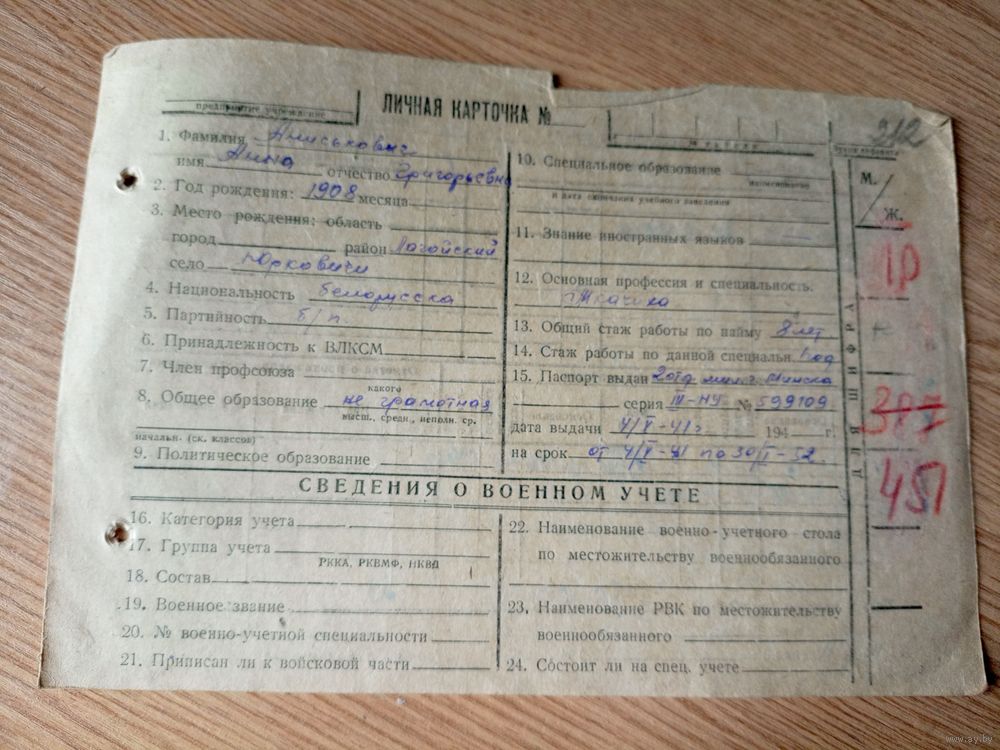 ЛИЧНАЯ КАРТОЧКА №
предприятие, учреждение
312
1. Фамилия Аниськович
имя Анна отчество Григорьевна
2. Год рождения: 1908 месяца
3. Место рождения: область
город район Логойский
село Юрковичи
4. Национальность белорусска
5. Партийность б/п.
6. Принадлежность к ВЛКСМ
7. Член профсоюза
какого
8. Общее образование не грамотная
высш., средн., неполн. ср.
начальн. (ск. классов)
9. Политическое образование
10. Специальное образование
наименование
и дата окончания учебного заведения
11. Знание иностранных языков
12. Основная профессия и специальность.
Ткачиха
13. Общий стаж работы по найму 8 лет
14. Стаж работы по данной специальн. 1 год
15. Паспорт выдан 2 отд мил. г. Минска
серия III-НУ № 599109
дата выдачи 4/V-41 г 194 г.
на срок от 4/V-41 по 30/I-52
М.
Ж.
ДЛЯ ШИФРА
1р
387
451
СВЕДЕНИЯ О ВОЕННОМ УЧЕТЕ
16. Категория учета
17. Группа учета
РККА, РКВМФ, НКВД
18. Состав
19. Военное звание
20. № военно-учетной специальности
21. Приписан ли к войсковой части
22. Наименование военно-учетного стола
по местожительству военнообязанного
23. Наименование РВК по местожительству
военнообязанного
24. Состоит ли на спец. учете
www.ay.by